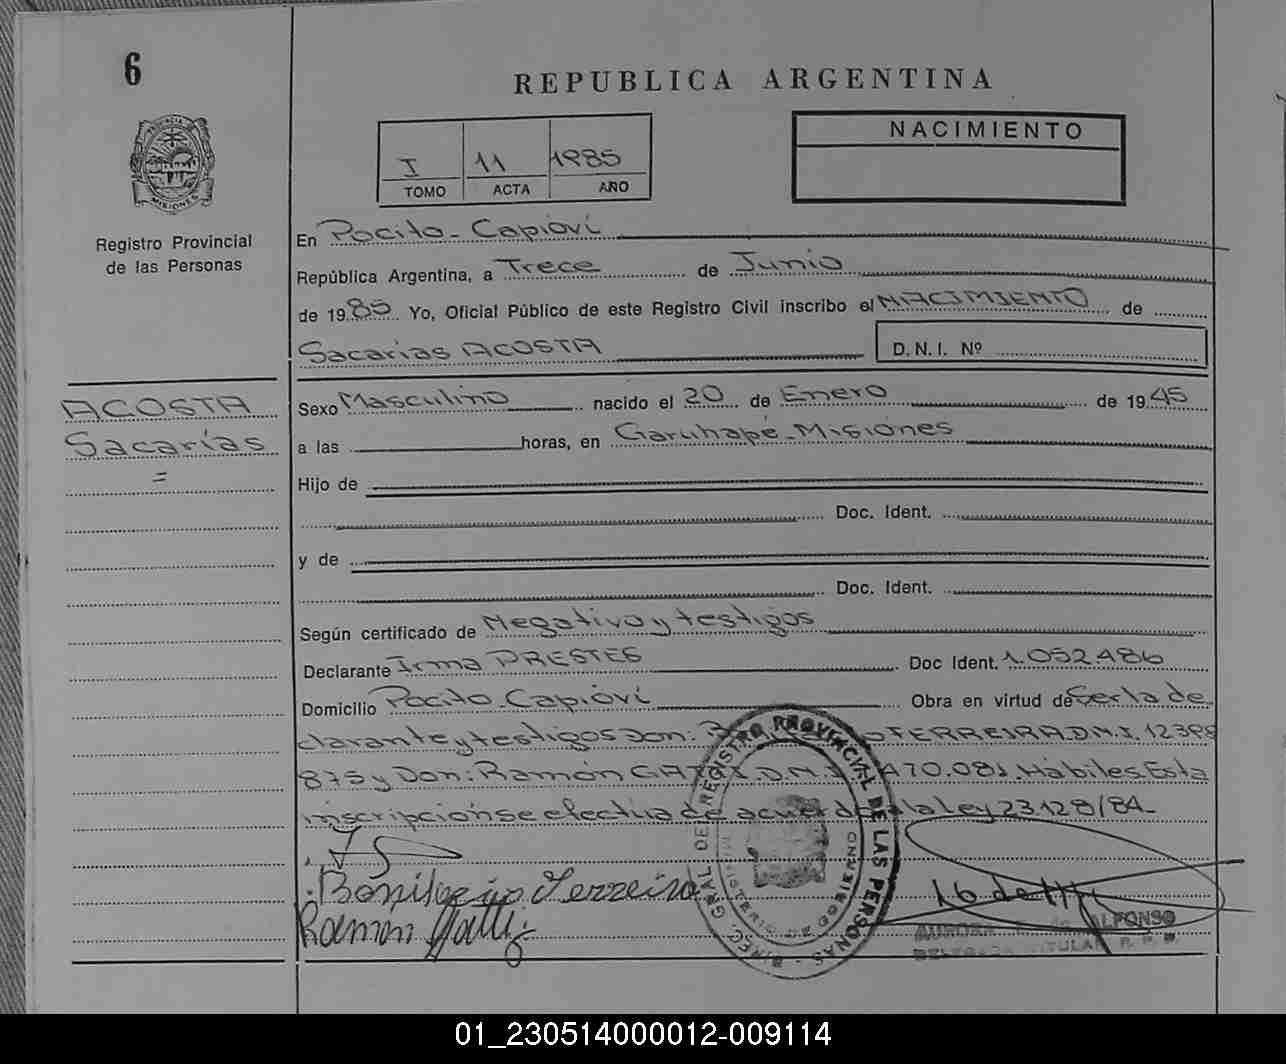 6
REPUBLICA ARGENTINA
PROVINCIA DE
MISIONES
Registro Provincial
de las Personas
I 11 1985
TOMO ACTA AÑO
NACIMIENTO
En Pocito - Capioví
República Argentina, a Trece de Junio
de 1985 Yo, Oficial Público de este Registro Civil inscribo el NACIMIENTO de
Sacarias ACOSTA
D.N.I. Nº
ACOSTA
Sacarías
=
Sexo Masculino nacido el 20 de Enero de 1945
a las horas, en Garuhapé - Misiones
Hijo de
Doc. Ident.
y de
Doc. Ident.
Según certificado de Negativo y testigos
Declarante Irma PRESTES Doc Ident. 1.052.486
Domicilio Pocito - Capioví Obra en virtud de Ser la de
clarante y testigos Don: FERREIRA D.N.I. 12.398
875 y Don: Ramón D.N.I. 470.081 Hábiles Esta
inscripción se efectúa de acuerdo a la Ley 23.128/84-
Ferreira
Ramón Gatti
DIREC. GRAL. DEL REGISTRO PROVINCIAL DE LAS PERSONAS
MINISTERIO DE GOBIERNO
AURORA de ALFONSO
DELEGADA TITULAR R. P. P.
01_230514000012-009114